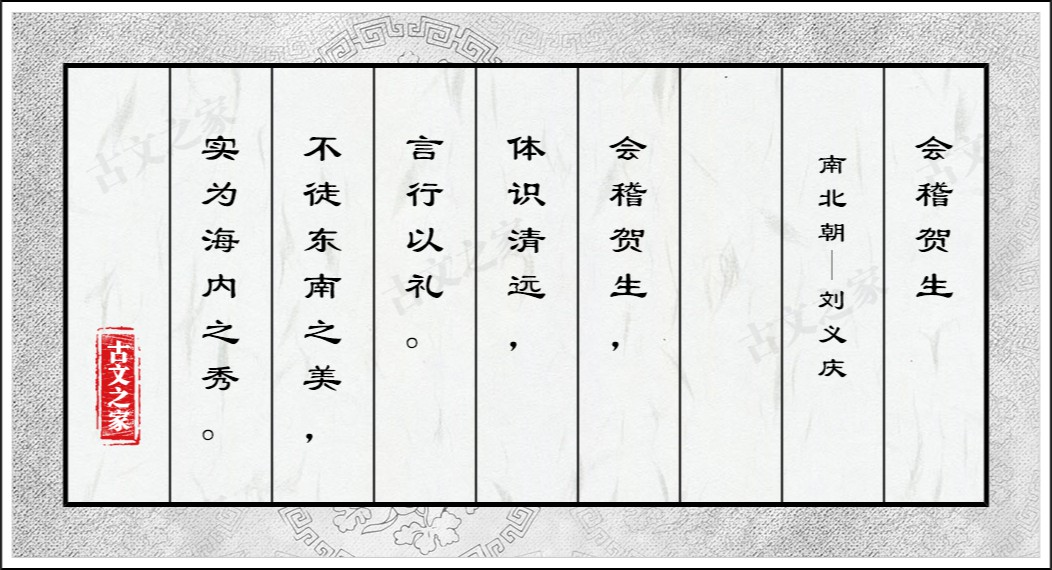 会稽贺生
南北朝—刘义庆
会稽贺生，
体识清远，
言行以礼。
不徒东南之美，
实为海内之秀。
古文之家
古文之家
古文之家
古文之家